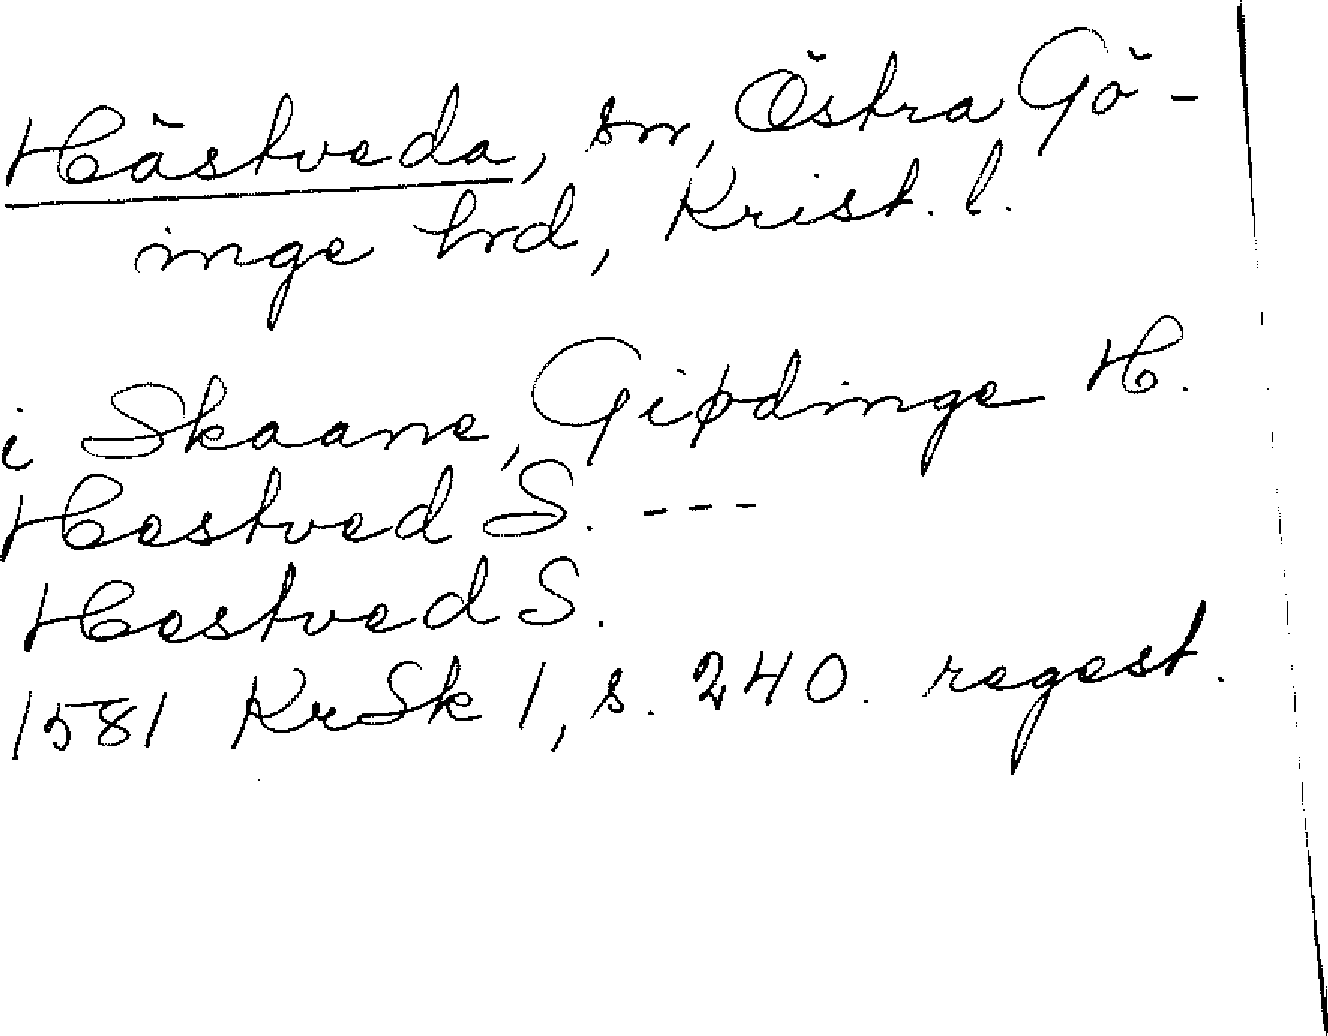 Hästveda, sn, Östra Gö-
inge hrd, Krist. l.
i Skaane, Giødinge H.
Hestved S. ---
Hestved S.
1581 KrSk 1, s. 240. regest.